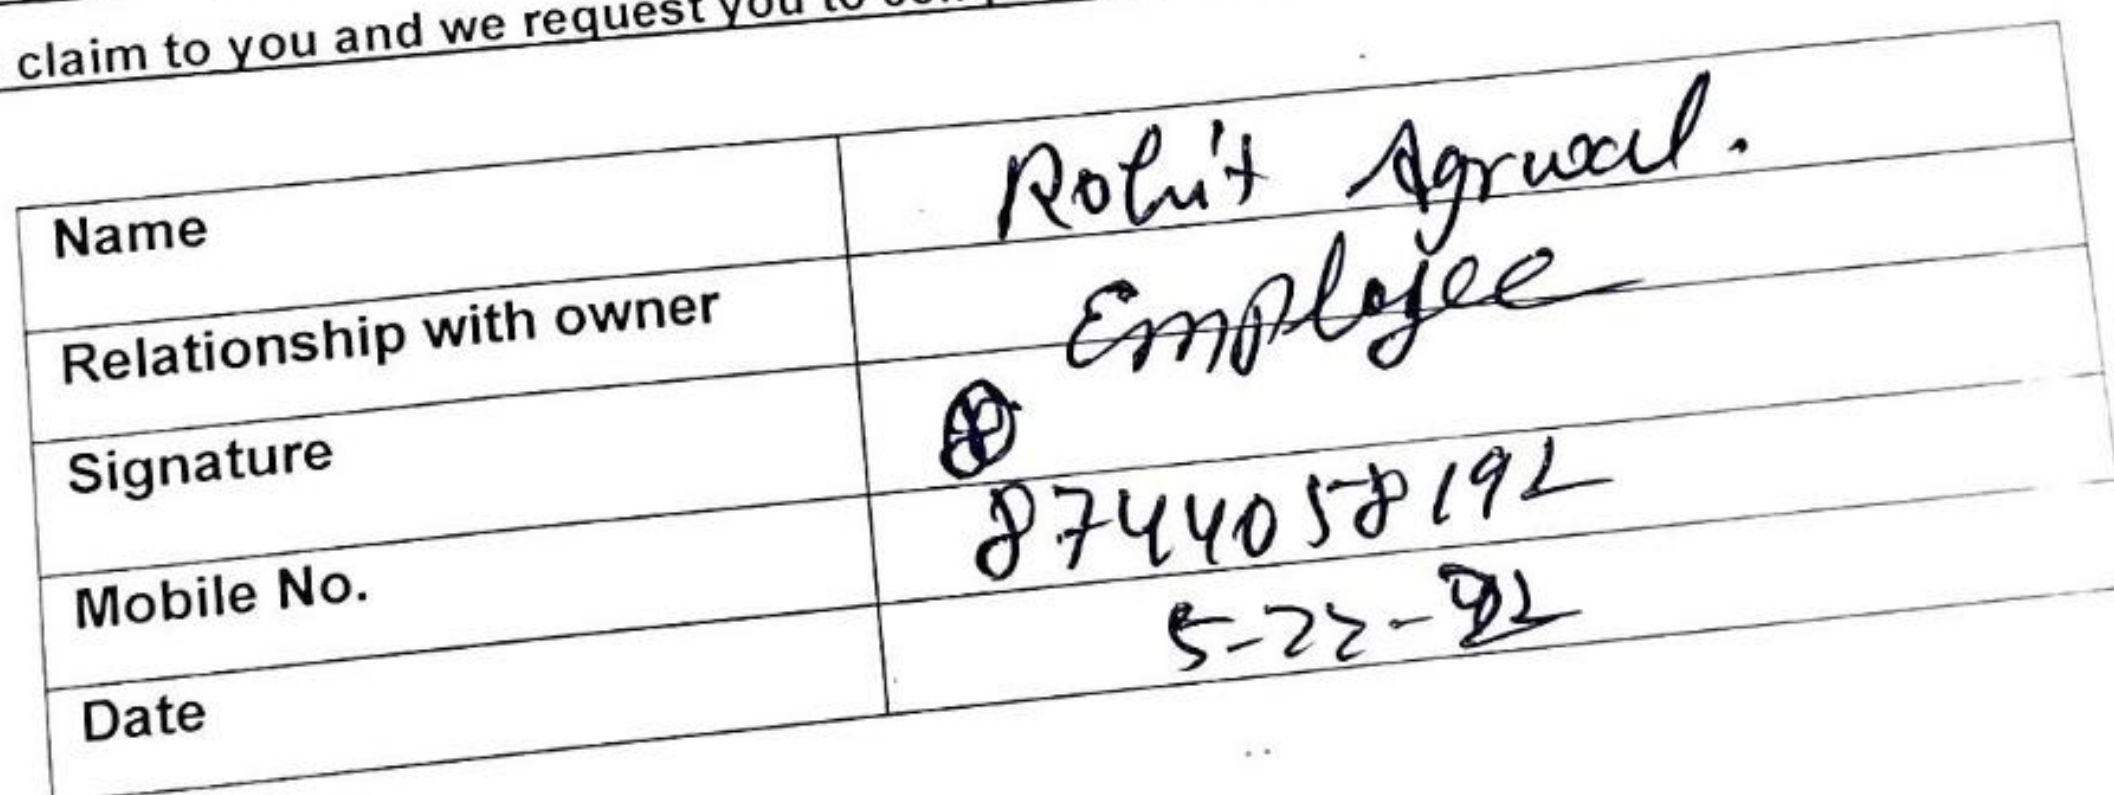 claim to you and we request you to
Name Rohit Agrwal.
Relationship with owner Employee
Signature
Mobile No. 8744058192
Date 5-22-